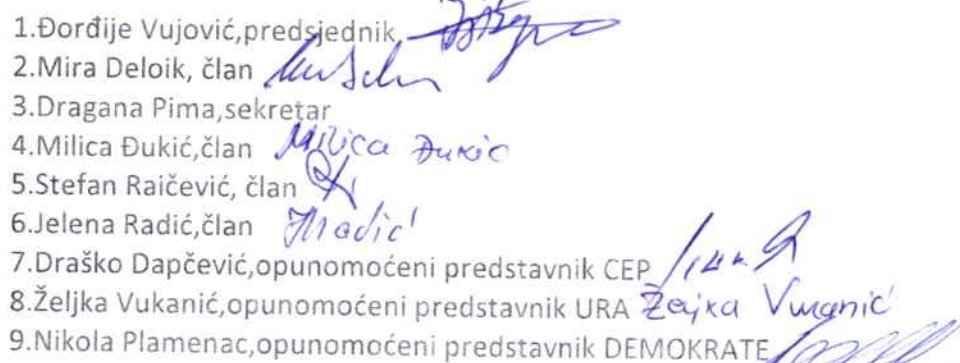 1.Đorđije Vujović,predsjednik,
2.Mira Deloik, član
3.Dragana Pima,sekretar
4.Milica Đukić,član Milica Đukić
5.Stefan Raičević, član
6.Jelena Radić,član JRadić
7.Draško Dapčević,opunomoćeni predstavnik CEP
8.Željka Vukanić,opunomoćeni predstavnik URA Željka Vukanić
9.Nikola Plamenac,opunomoćeni predstavnik DEMOKRATE